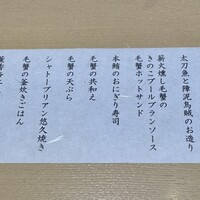 太刀魚と障泥烏賊のお造り
薪火燻し毛蟹の
きのこブールブランソース
毛蟹ホットサンド
本鮪のおにぎり寿司
毛蟹の共和え
毛蟹の天ぷら
シャトーブリアン悠久焼き
毛蟹の釜炊きごはん